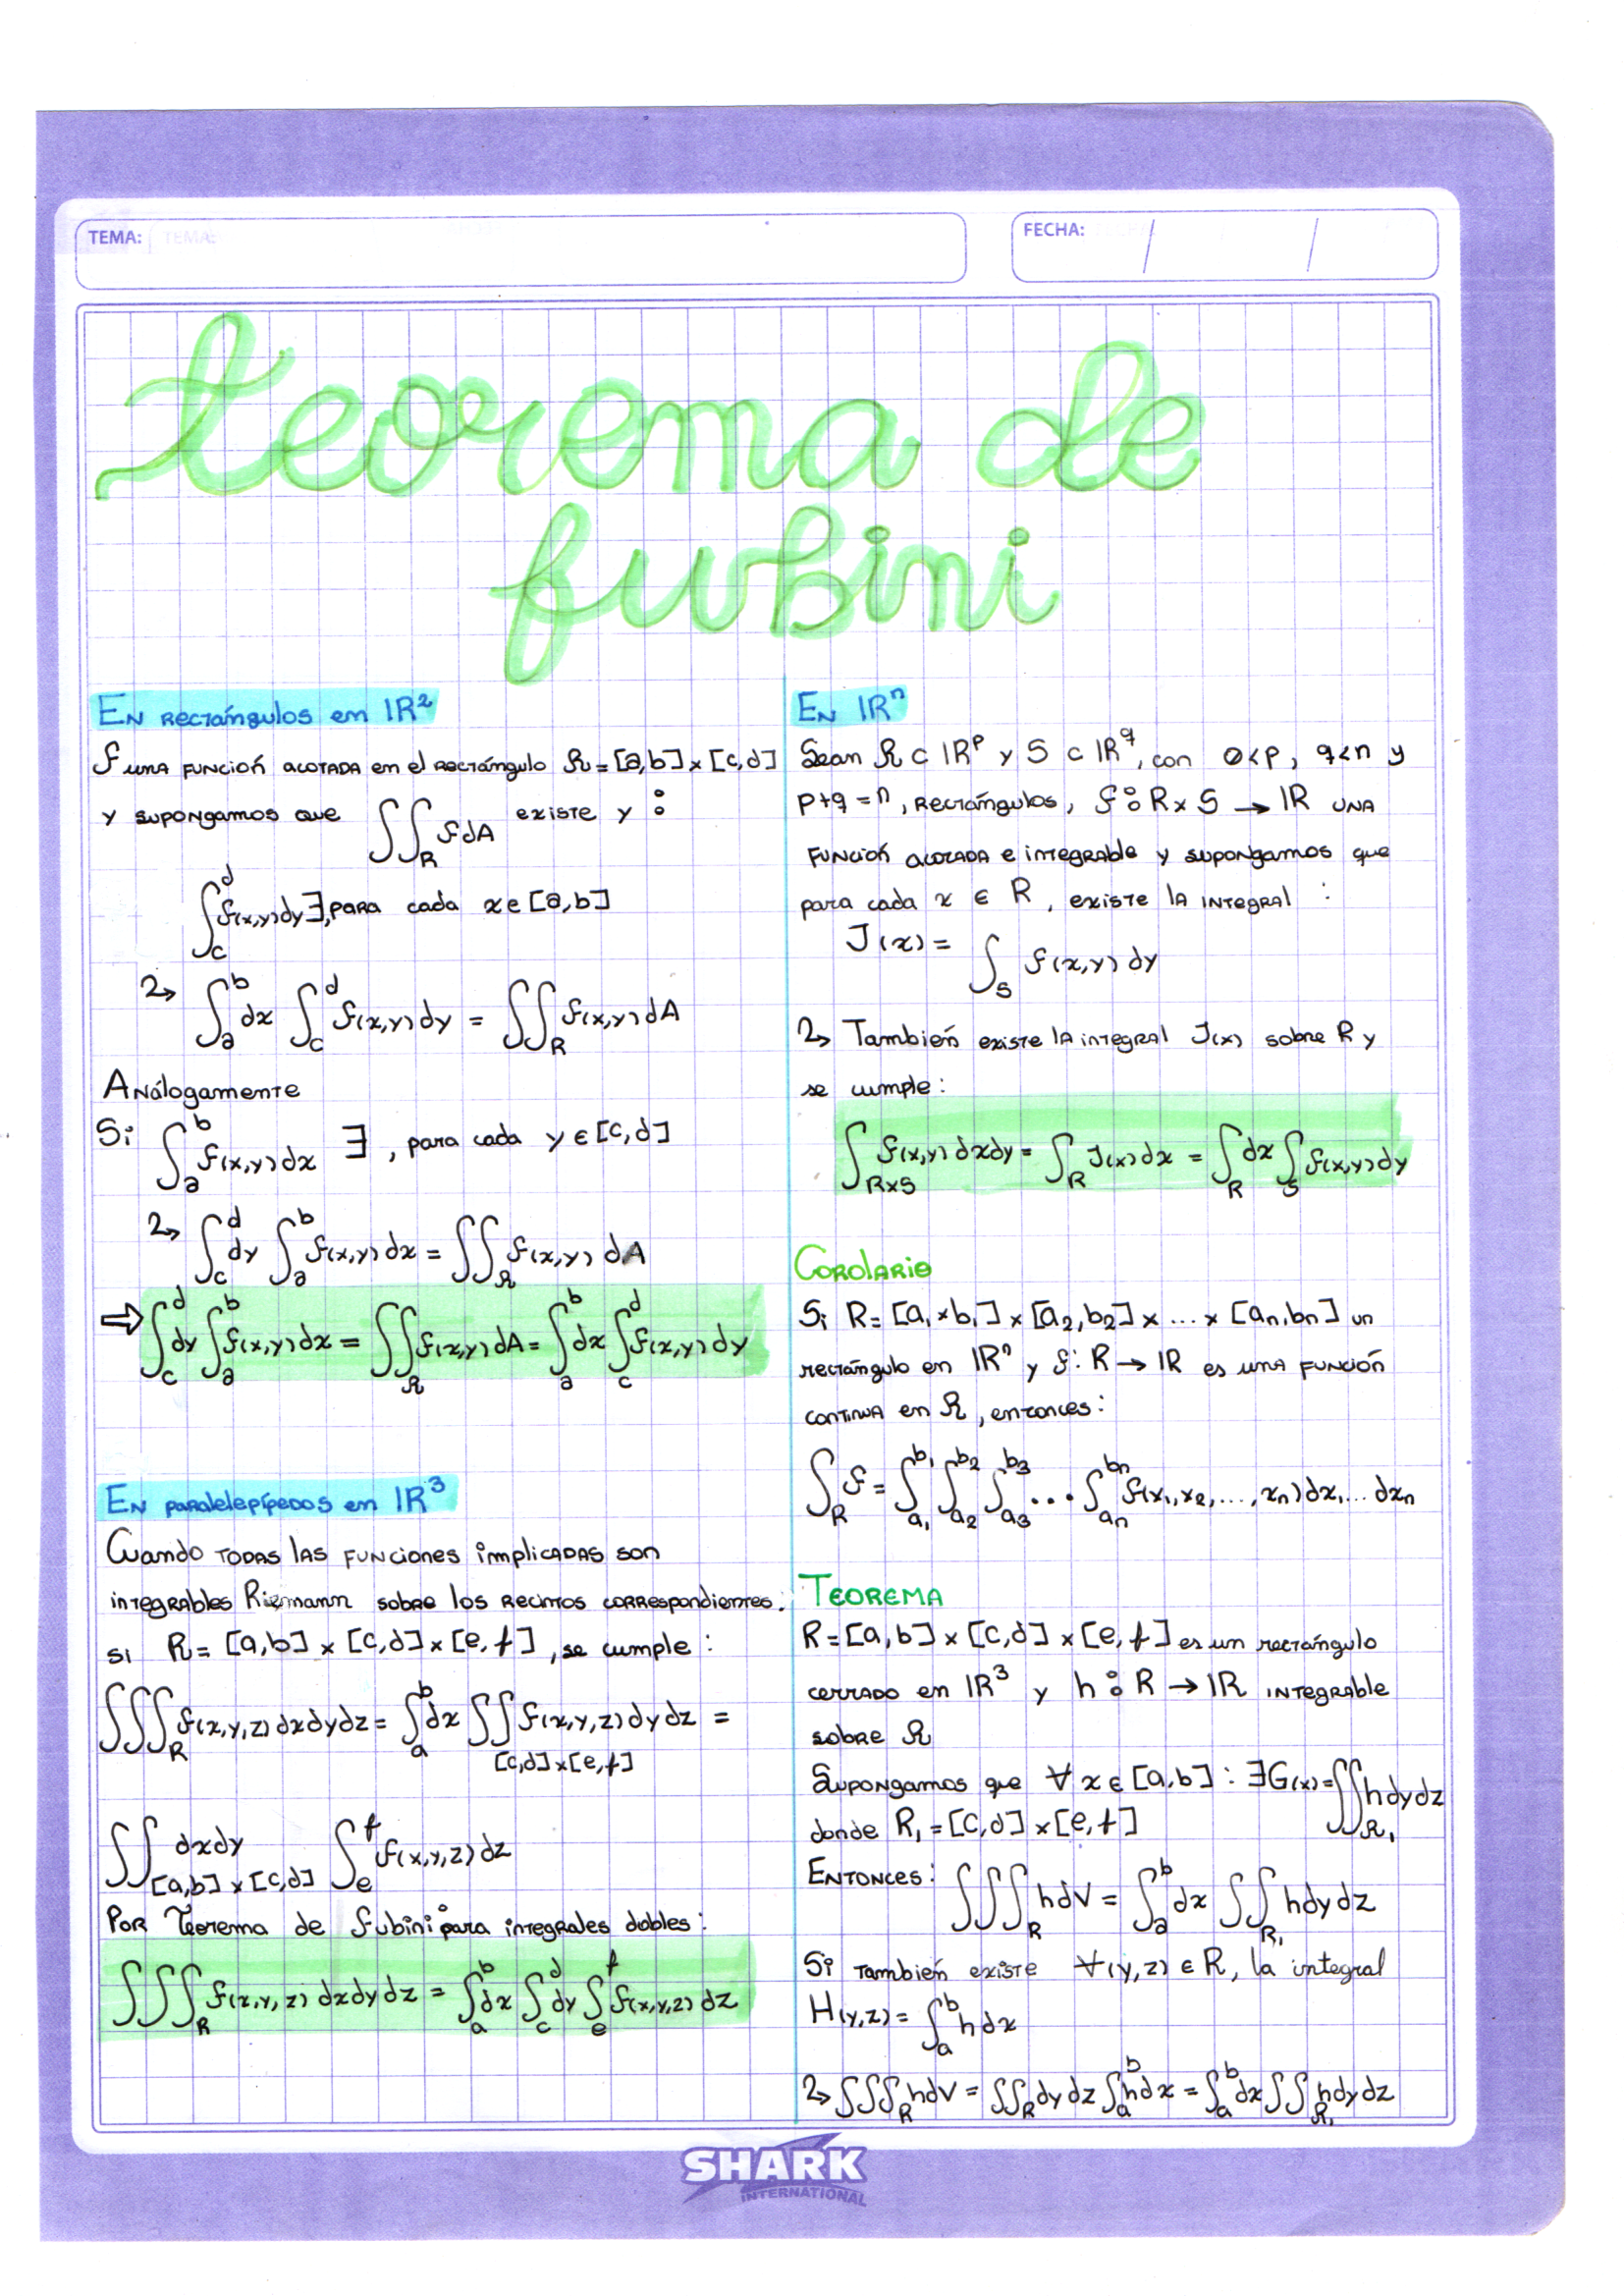 TEMA:
FECHA: / /
teorema de
fubini
En rectángulos en IR²
f una función acotada en el rectángulo R = [a,b] × [c,d]
y supongamos que ∫∫_R f dA existe y :
∫_c^d f(x,y) dy ∃, para cada x ∈ [a,b]
2→ ∫_a^b dx ∫_c^d f(x,y) dy = ∫∫_R f(x,y) dA
Análogamente
Si ∫_a^b f(x,y) dx ∃ , para cada y ∈ [c,d]
2→ ∫_c^d dy ∫_a^b f(x,y) dx = ∫∫_R f(x,y) dA
⇒ ∫_c^d dy ∫_a^b f(x,y) dx = ∫∫_R f(x,y) dA = ∫_a^b dx ∫_c^d f(x,y) dy
En paralelepípedos en IR³
Cuando todas las funciones implicadas son
integrables Riemann sobre los recintos correspondientes.
si R = [a,b] × [c,d] × [e,f] , se cumple :
∫∫∫_R f(x,y,z) dxdydz = ∫_a^b dx ∫∫_{[c,d]×[e,f]} f(x,y,z) dydz =
∫∫_{[a,b]×[c,d]} dxdy ∫_e^f f(x,y,z) dz
Por Teorema de fubini para integrales dobles :
∫∫∫_R f(x,y,z) dxdydz = ∫_a^b dx ∫_c^d dy ∫_e^f f(x,y,z) dz
En IRⁿ
Sean R ⊂ IR^p y S ⊂ IR^q, con 0<p, q<n y
p+q = n , rectángulos, f : R × S → IR una
función acotada e integrable y supongamos que
para cada x ∈ R , existe la integral :
J(x) = ∫_S f(x,y) dy
2→ También existe la integral J(x) sobre R y
se cumple :
∫_{R×S} f(x,y) dxdy = ∫_R J(x) dx = ∫_R dx ∫_S f(x,y) dy
Corolario
Si R = [a₁ × b₁] × [a₂,b₂] × ... × [an,bn] un
rectángulo en IRⁿ y f : R → IR es una función
continua en R , entonces :
∫_R f = ∫_{a₁}^{b₁} ∫_{a₂}^{b₂} ∫_{a₃}^{b₃} ... ∫_{an}^{bn} f(x₁,x₂,...,xn) dx₁... dxn
Teorema
R = [a,b] × [c,d] × [e,f] es un rectángulo
cerrado en IR³ y h : R → IR integrable
sobre R
Supongamos que ∀ x ∈ [a,b] : ∃ G(x) = ∫∫_{R₁} h dydz
donde R₁ = [c,d] × [e,f]
Entonces : ∫∫∫_R h dV = ∫_a^b dx ∫∫_{R₁} h dydz
Si también existe ∀ (y,z) ∈ R, la integral
H(y,z) = ∫_a^b h dx
2→ ∫∫∫_R h dV = ∫∫_R dy dz ∫_a^b h dx = ∫_a^b dx ∫∫_{R₁} h dy dz
SHARK
INTERNATIONAL